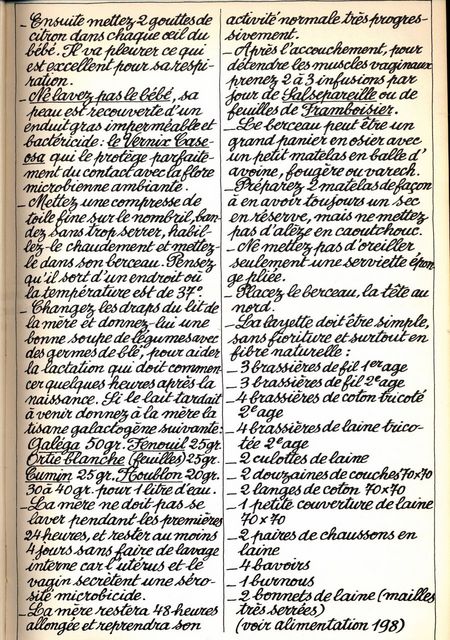 _Ensuite mettez 2 gouttes de
citron dans chaque œil du
bébé. Il va pleurer ce qui
est excellent pour sa respi-
ration.
_Ne lavez pas le bébé, sa
peau est recouverte d'un
enduit gras imperméable et
bactéricide: le Vernix Case-
osa qui le protège parfaite-
ment du contact avec la flore
microbienne ambiante.
_Mettez une compresse de
toile fine sur le nombril, ban-
dez sans trop serrer, habil-
lez-le chaudement et mettez-
le dans son berceau. Pensez
qu'il sort d'un endroit où
la température est de 37°.
_Changez les draps du lit de
la mère et donnez-lui une
bonne soupe de légumes avec
des germes de blé, pour aider
la lactation qui doit commen-
cer quelques heures après la
naissance. Si le lait tardait
à venir donnez à la mère la
tisane galactogène suivante:
Galéga 50gr. Fenouil 25gr.
Ortie blanche (feuilles) 25gr.
Cumin 25gr. Houblon 20gr.
30 à 40gr. pour 1 litre d'eau.
_La mère ne doit pas se
laver pendant les premières
24 heures, et rester au moins
4 jours sans faire de lavage
interne car l'utérus et le
vagin secrètent une séro-
sité microbicide.
_La mère restera 48 heures
allongée et reprendra son
activité normale très progres-
sivement.
_Après l'accouchement, pour
détendre les muscles vaginaux
prenez 2 à 3 infusions par
jour de Salsepareille ou de
feuilles de Framboisier.
_Le berceau peut être un
grand panier en osier avec
un petit matelas en balle d'
avoine, fougère ou varech.
_Préparez 2 matelas de façon
à en avoir toujours un sec
en réserve, mais ne mettez
pas d'alèze en caoutchouc.
_Ne mettez pas d'oreiller
seulement une serviette épon-
ge pliée.
_Placez le berceau, la tête au
nord.
_La layette doit être simple,
sans fioriture et surtout en
fibre naturelle:
_3 brassières de fil 1er age
_3 brassières de fil 2e age
_4 brassières de coton tricoté
2e age
_4 brassières de laine trico-
tée 2e age
_2 culottes de laine
_2 douzaines de couches 70x70
_2 langes de coton 70x70
_1 petite couverture de laine
70x70
_2 paires de chaussons en
laine
_4 bavoirs
_1 burnous
_2 bonnets de laine (mailles
très serrées)
(voir alimentation 198)